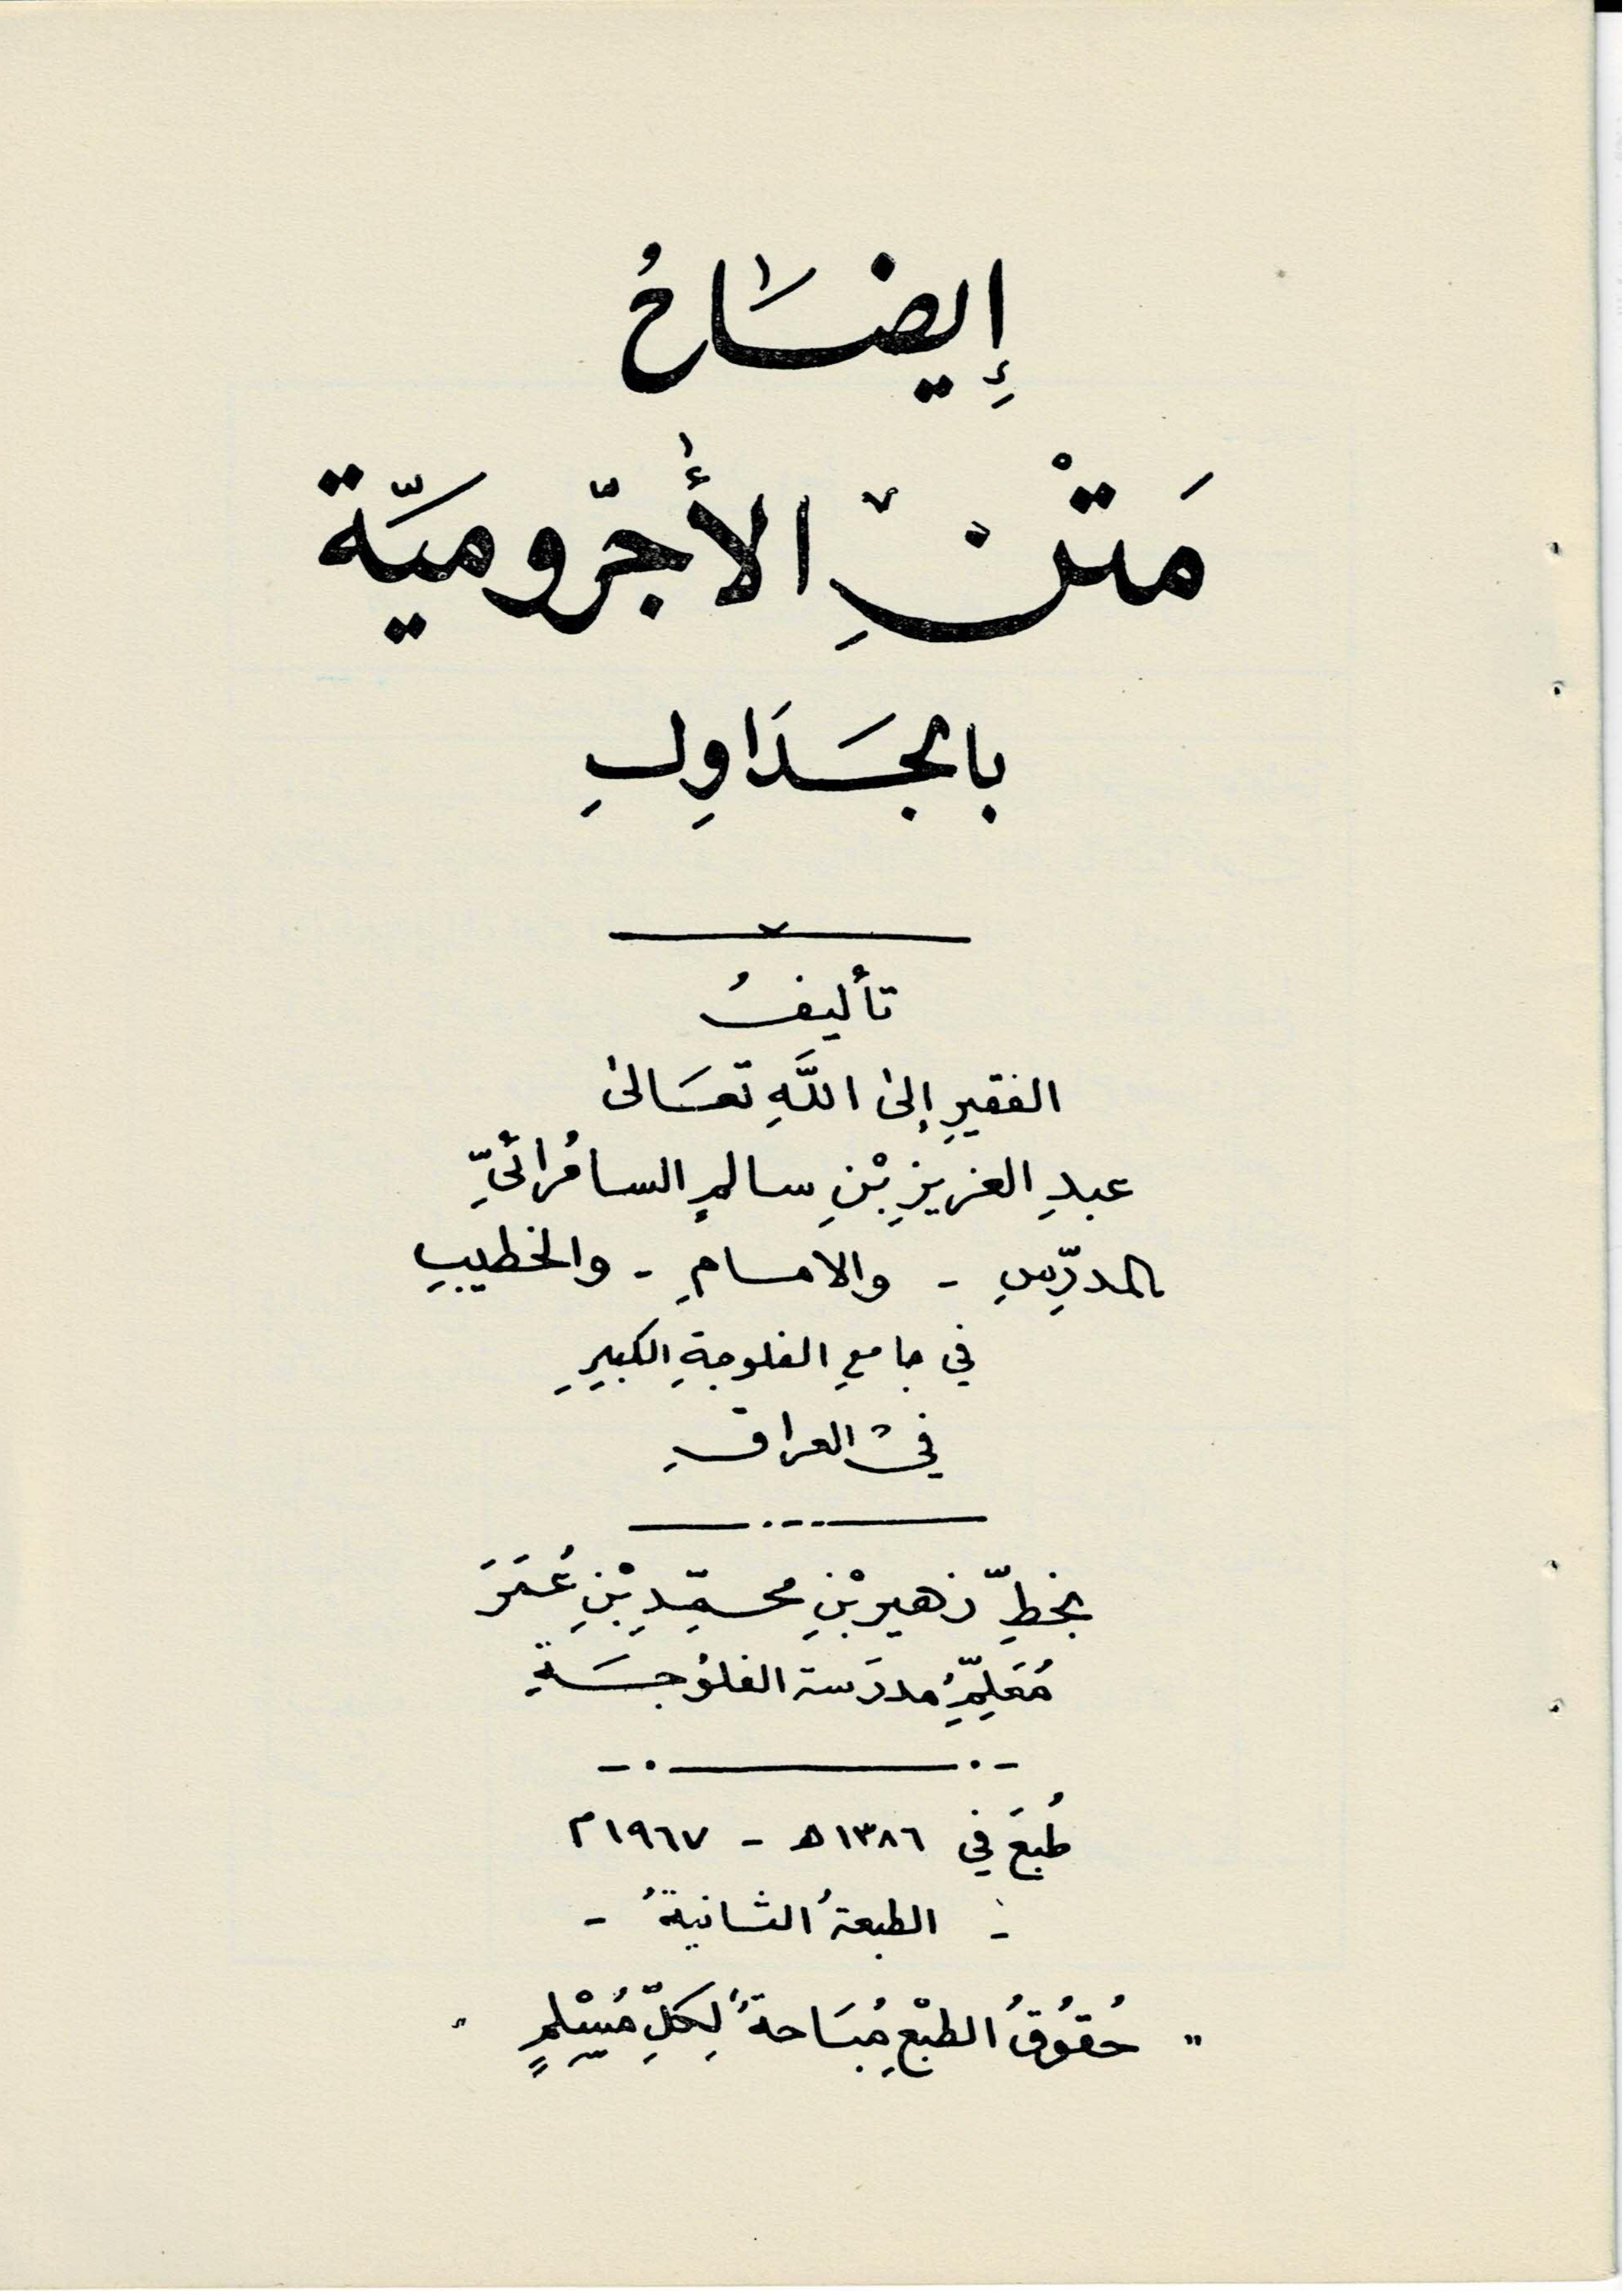 إِيضَاحُ
مَتْنِ الأَجّرُّوميَّة
بالجَدَاوِلِ
تأليفُ
الفقيرِ إلى اللَّهِ تعَالى
عبدِ العزيزِ بْنِ سالمٍ السامُرائيِّ
المدرِّسِ - والامامِ - والخطيبِ
في جامعِ الفلوجةِ الكبيرِ
فيْ العراقِ
بخطِّ زهير بْنِ محمّدِ بْنِ عُمَرَ
مُعَلِّمِ مدرَسة الفلوُجَةِ
طُبعَ في ١٣٨٦ هـ - ١٩٦٧ م
- الطبعةُ الثانيةُ -
" حُقوُقُ الطبْعِ مُبَاحةٌ لِكلِّ مُسْلِمٍ "